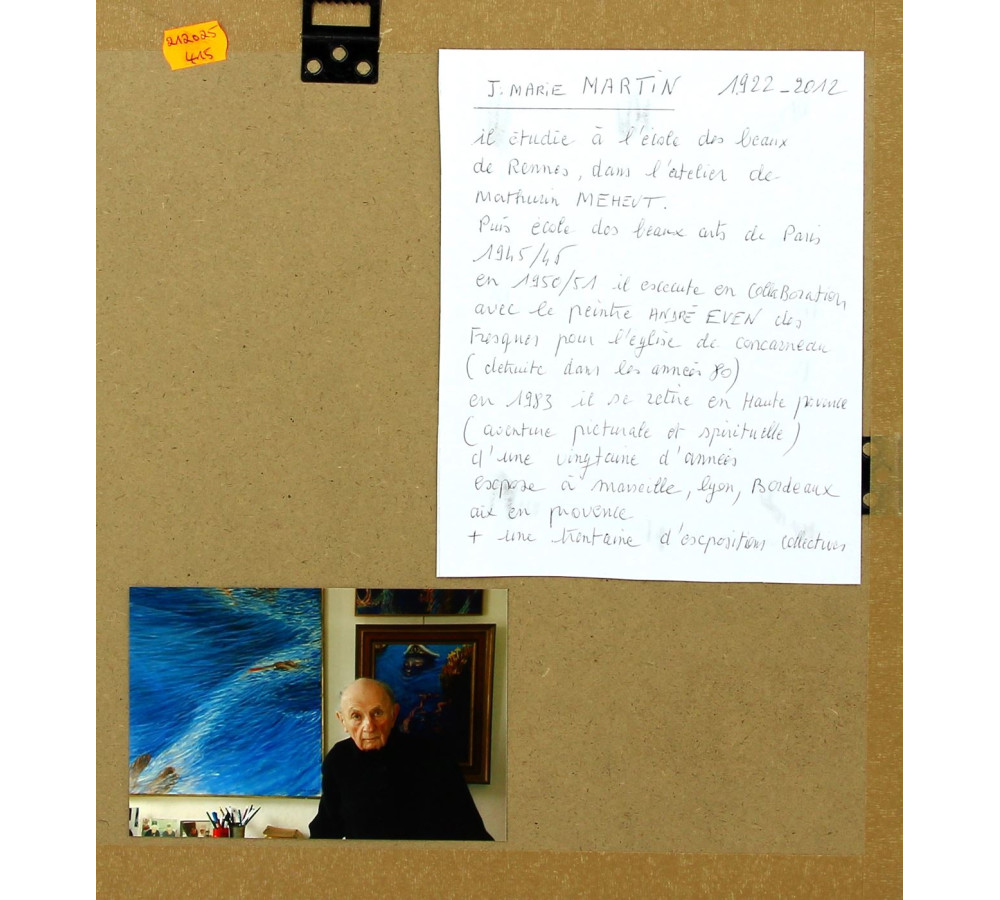 212025
415
J. MARIE MARTIN 1922-2012
il étudie à l'école des beaux
de Rennes, dans l'atelier de
Mathurin MEHEUT.
Puis école des beaux arts de Paris
1945/46
en 1950/51 il execute en collaboration
avec le peintre ANDRÉ EVEN des
Fresques pour l'église de Concarneau
(detruite dans les années 80)
en 1983 il se retire en Haute provence
(aventure picturale et spirituelle)
d'une vingtaine d'années
expose à Marseille, lyon, Bordeaux
aix en provence
+ une trentaine d'expositions collectives